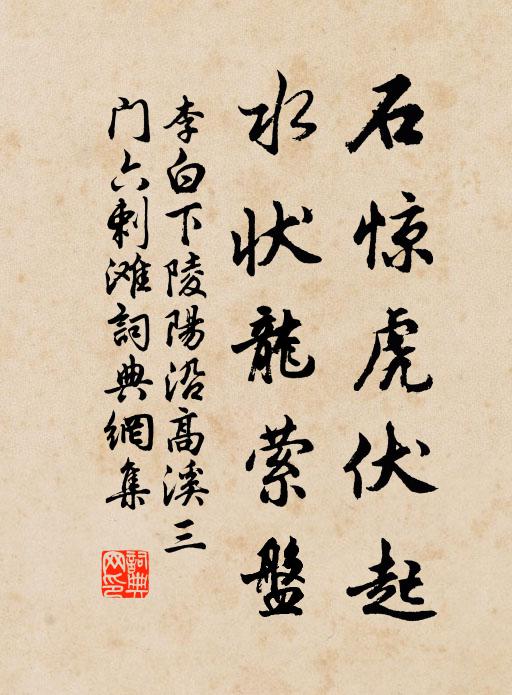 石惊虎伏起
水状龍萦盤
李白下陵陽沿高溪三
门六剌滩詞典網集
詞典网印